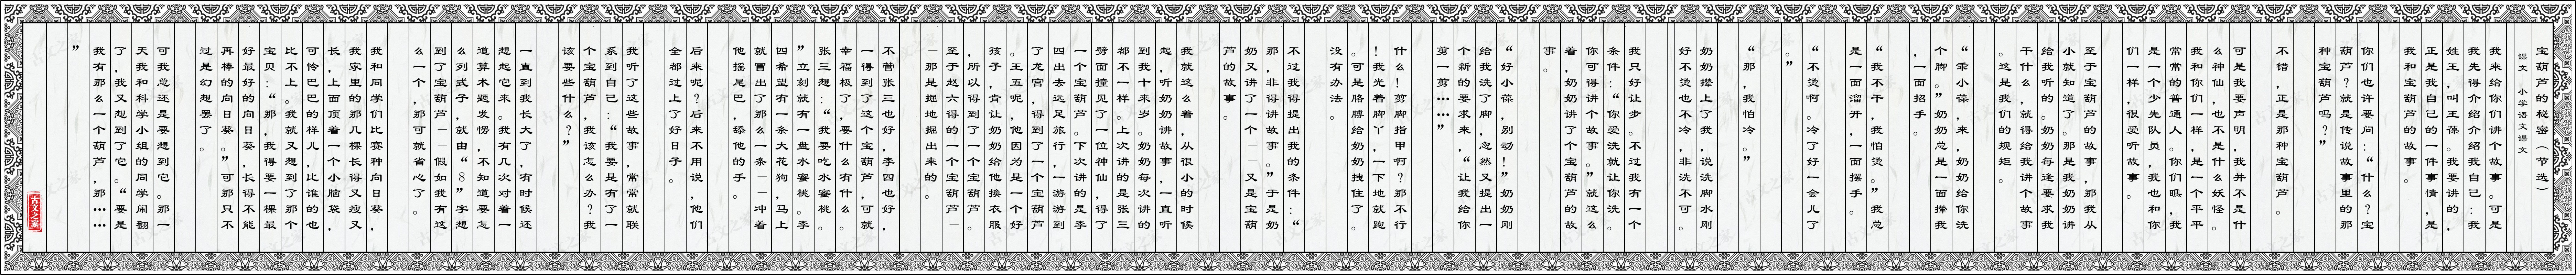 宝葫芦的秘密（节选）
课文－小学语文课文
我来给你们讲个故事。可是
我先得介绍介绍我自己：我
姓王，叫王葆。我要讲的，
正是我自己的一件事情，是
我和宝葫芦的故事。
你们也许要问：“什么？宝
葫芦？就是传说故事里的那
种宝葫芦吗？”
不错，正是那种宝葫芦。
可是我要声明，我并不是什
么神仙，也不是什么妖怪。
我和你们一样，是一个平平
常常的普通人。你们瞧，我
是一个少先队员，我也和你
们一样，很爱听故事。
至于宝葫芦的故事，那我从
小就知道了。那是我奶奶讲
给我听的。奶奶每逢要求我
干什么，就得给我讲个故事
。这是我们的规矩。
“乖小葆，来，奶奶给你洗
个脚。”奶奶总是一面撵我
，一面招手。
“我不干，我怕烫。”我总
是一面溜开，一面摆手。
“不烫啊。冷了好一会儿了
。”
“那，我怕冷。”
奶奶撵上了我，说洗脚水刚
好不烫也不冷，非洗不可。
我只好让步。不过我有一个
条件：“你爱洗就让你洗。
你可得讲个故事。”就这么
着，奶奶讲了个宝葫芦的故
事。
“好小葆，别动！”奶奶刚
给我洗了脚，忽然又提出一
个新的要求来，“让我给你
剪一剪……”
什么！剪脚指甲啊？那不行
！我光着脚丫，一下地就跑
。可是胳膊给奶奶拽住了。
没有办法。
不过我得提出我的条件：“
那，非得讲故事。”于是奶
奶又讲了一个——又是宝葫
芦的故事。
我就这么着，从很小的时候
起，听奶奶讲故事，一直听
到我十来岁。奶奶每次讲的
都不一样。上次讲的是张三
劈面撞见了一位神仙，得了
一个宝葫芦。下次讲的是李
四出去远足旅行，一游游到
了龙宫，得到了一个宝葫芦
。王五呢，他因为是一个好
孩子，肯让奶奶给他换衣服
，所以得到了一个宝葫芦。
至于赵六得的一个宝葫芦—
—那是掘地掘出来的。
不管张三也好，李四也好，
一得到了这个宝葫芦，可就
幸福极了。要什么有什么。
张三想：“我要吃水蜜桃。
”立刻就有一盘水蜜桃。李
四希望有一条大花狗，马上
就冒出了那么一条——冲着
他摇尾巴，舔他的手。
后来呢？后来不用说，他们
全都过上了好日子。
我听了这些故事，常常就联
系到自己：“我要是有了一
个宝葫芦，我该怎么办？我
该要些什么？”
一直到我长大了，有时候还
想起它来。我有几次对着一
道算术题发愣，不知道要怎
么列式子，就由“8”字想
到了宝葫芦——假如我有这
么一个，那可就省心了。
我和同学们比赛种向日葵，
我家里的那几棵长得又瘦又
长，上面顶着一个小脑袋，
可怜巴巴的样儿，比谁的也
比不上。我就又想到了那个
宝贝：“那，我得要一棵最
好最好的向日葵，长得不能
再棒的向日葵。”可那只不
过是幻想罢了。
可我总还是要想到它。那一
天我和科学小组的同学闹翻
了，我又想到了它。“要是
我有那么一个葫芦，那……
”
古文之家